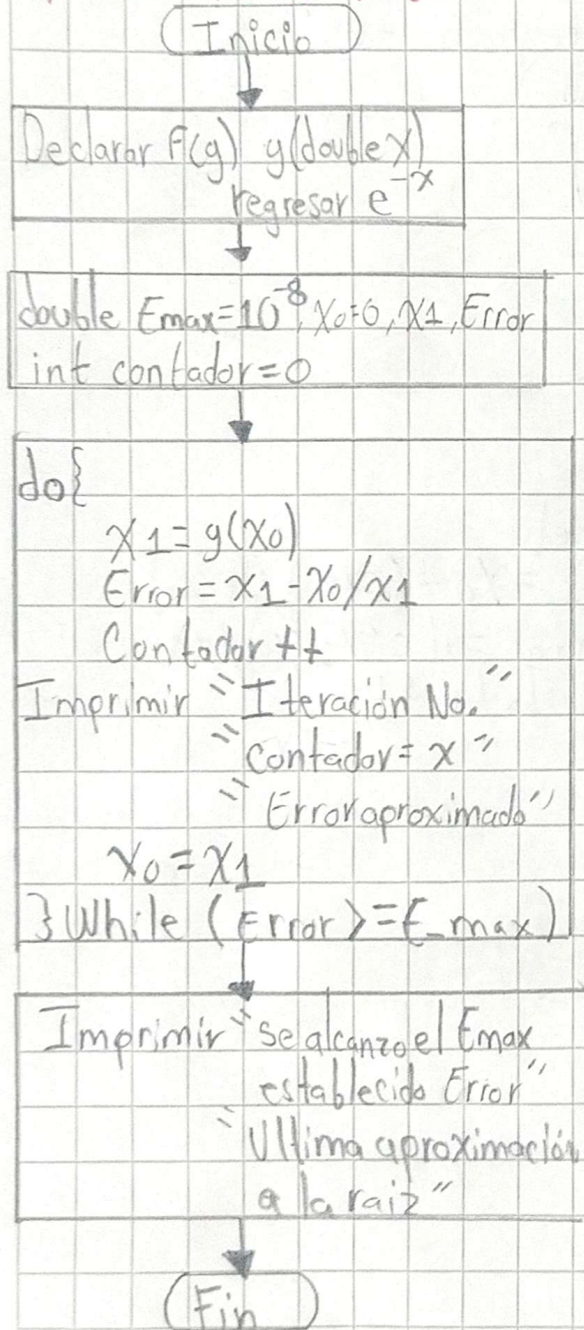 Inicio
Declarar f(g) g(double x)
regresar e^-x
double Emax=10^-8, x0=0, x1, Error
int contador=0
do{
x1=g(x0)
Error=x1-x0/x1
Contador ++
Imprimir "Iteración No."
"Contador= x"
"Error aproximado"
x0=x1
}While (Error>=E_max)
Imprimir "se alcanzo el Emax
establecido Error"
"Ultima aproximación
a la raiz"
Fin